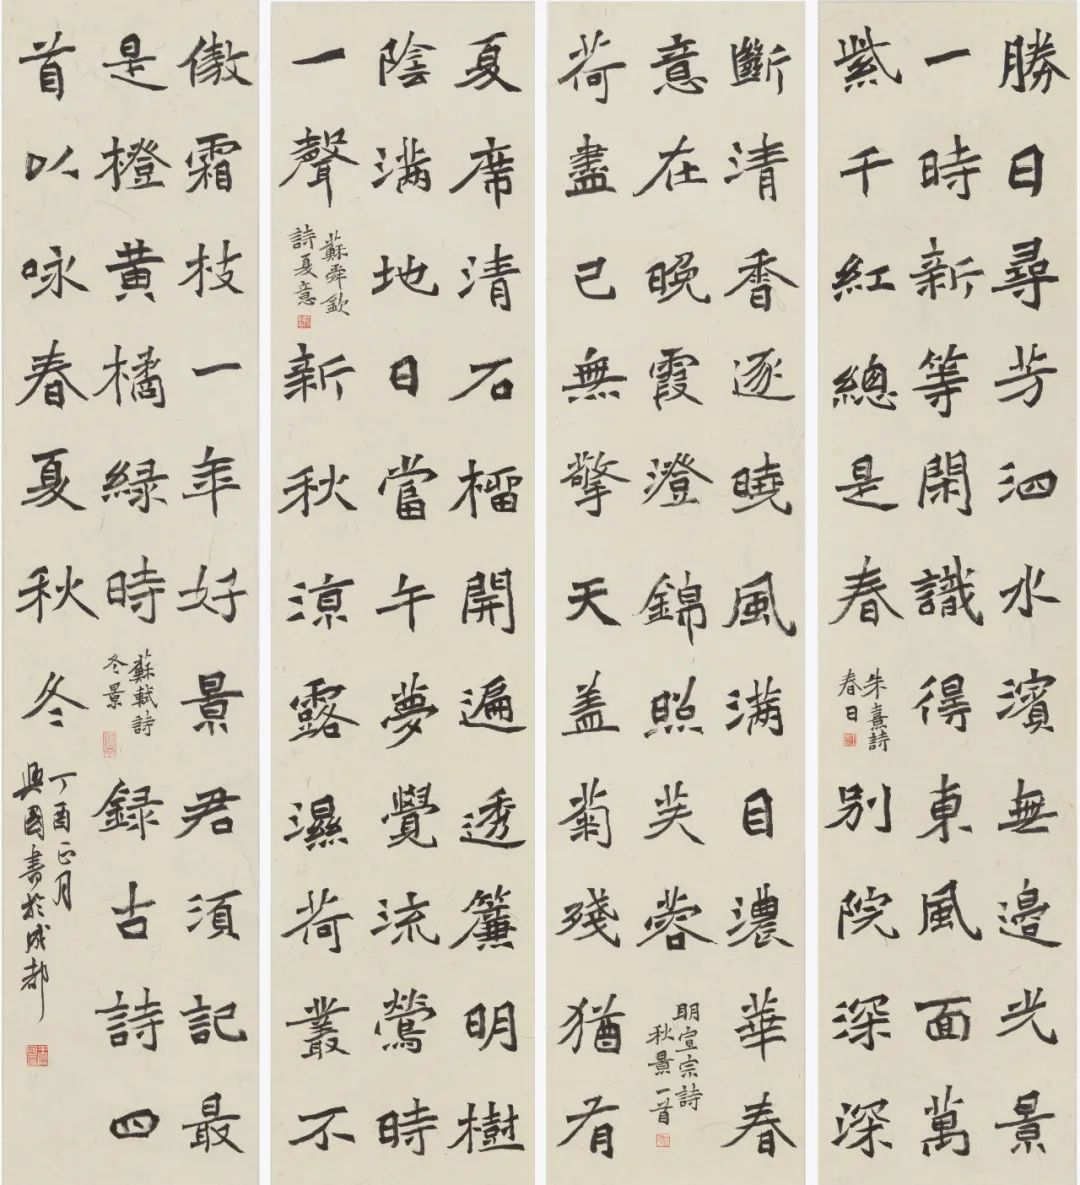 勝日尋芳泗水濱無邊光景
一時新等閑識得東風面萬
紫千紅總是春
朱熹詩
春日
別院深深
斷清香逐曉風满目濃華春
意在晚霞澄錦照芙蓉
明宣宗詩
秋景一首
荷盡已無擎天盖菊殘猶有
夏席清石榴開遍透簾明樹
陰满地日當午夢覺流鶯時
一聲
蘇舜欽
詩夏意
新秋涼露濕荷叢不
傲霜枝一年好景君須記最
是橙黄橘緑時
蘇軾詩
冬景
録古詩四
首以咏春夏秋冬
丁酉正月
興國書於成都